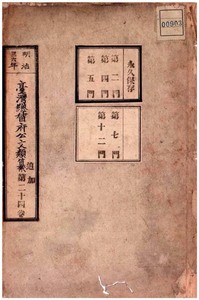 00903
永久保存
第二門
第四門
第五門
第七門
第十二門
明治
臺灣總督府公文類纂
追加
第二十四卷